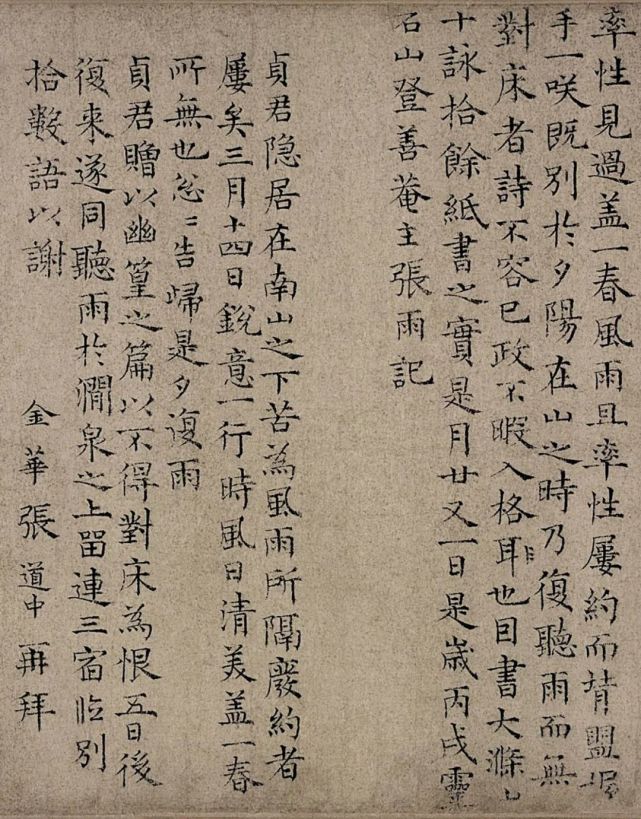 率性見過盖一春風雨且率性屢約而背盟握
手一咲既別於夕陽在山之時乃復聽雨而無
對床者詩不容已政不暇入格耳也因書大滌
十詠拾餘紙書之實是月廿又一日是歲丙戌靈
石山登善菴主張雨記
貞君隐居在南山之下苦為風雨所隔廢約者
屢矣三月十四日銳意一行時風日清美盖一春
所無也怱〻告歸是夕復雨
貞君贈以幽篁之篇以不得對床為恨五日後
復来遂同聽雨於澗泉之上留連三宿临別
拾數語以謝
金華張道中再拜